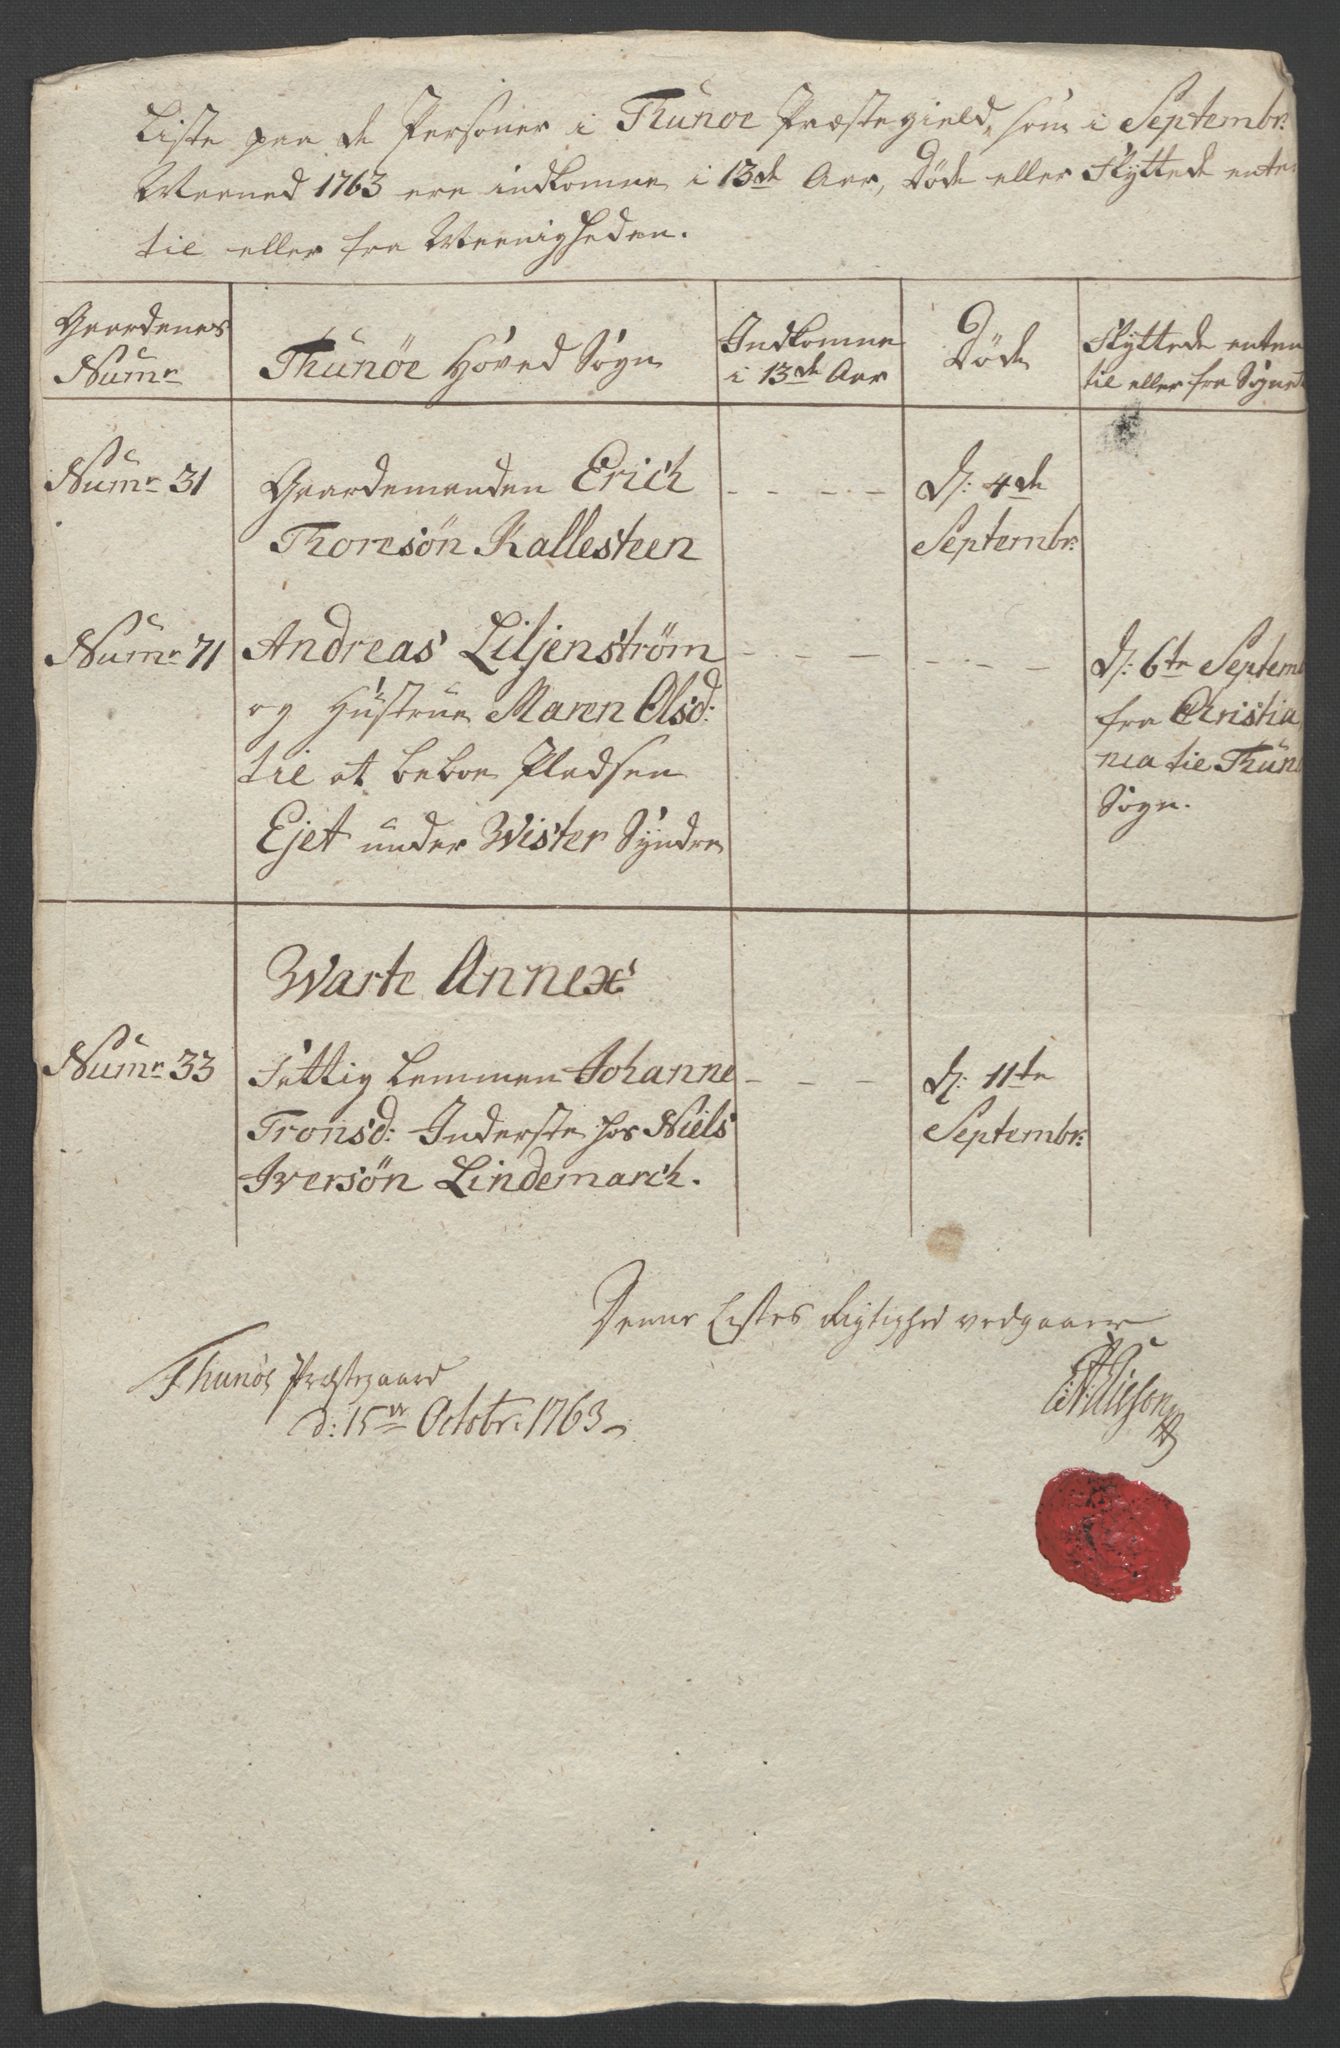 Liste paa de Personer i Thunøe Præstegield, som i Septembr:
Maaned 1763 ere indkomne i 13de Aar, Døde eller Flyttede enten
til eller fra Meenigheden.
Gaardenes
Numr
Thunøe Hoved Sogn
Indkomne
i 13de Aar
Døde
Flyttede enten
til eller fra Sognet
Numr 31
Gaardemanden Erich
Thoresøn Kallesteen
- - - -
D: 4de
Septembr:
Numr 71
Andreas Liljenstrøm
og Hustrue Maren Olsd:
til at beboe Pladsen
Ejet under Wister Syndre
- - - -
- - - -
D: 6te Septemb
fra Christia
nia til Thunø
Sogn.
Warte Annex
Numr 33
Fattig Lemmen Johanne
Tronsd: Inderste hos Niels
Iversøn Lindemarch.
- - -
D: 11te
Septembr:
Denne Listes Rigtighed vedgaaer
Thunøe Præstegaard
d: 15de Octobr: 1763